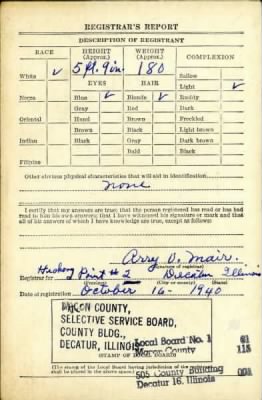 REGISTRAR'S REPORT
DESCRIPTION OF REGISTRANT
RACE HEIGHT (Approx.) WEIGHT (Approx.) COMPLEXION
White ✓ 5 ft. 9 in. 180 Sallow
EYES HAIR Light ✓
Negro Blue ✓ Blonde ✓ Ruddy
Gray Red Dark
Oriental Hazel Brown Freckled
Brown Black Light brown
Indian Black Gray Dark brown
Bald Black
Filipino
Other obvious physical characteristics that will aid in identification
None
I certify that my answers are true; that the person registered has read or has had
read to him his own answers; that I have witnessed his signature or mark and that
all of his answers of which I have knowledge are true, except as follows:
(Signature of registrar)
Registrar for Point #2 Decatur Illinois
(Precinct) (City or county) (State)
Date of registration October 16 - 1940
MACON COUNTY,
SELECTIVE SERVICE BOARD,
COUNTY BLDG.,
DECATUR, ILLINOIS
Local Board No. 1 61
Macon County 115
STAMP OF LOCAL BOARD
505 County Building 001
Decatur 16, Illinois
(The stamp of the Local Board having jurisdiction of the
shall be placed in the above space.)